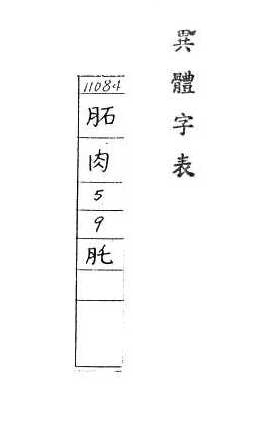 異體字表
11084
䄷
肉
5
9
肊